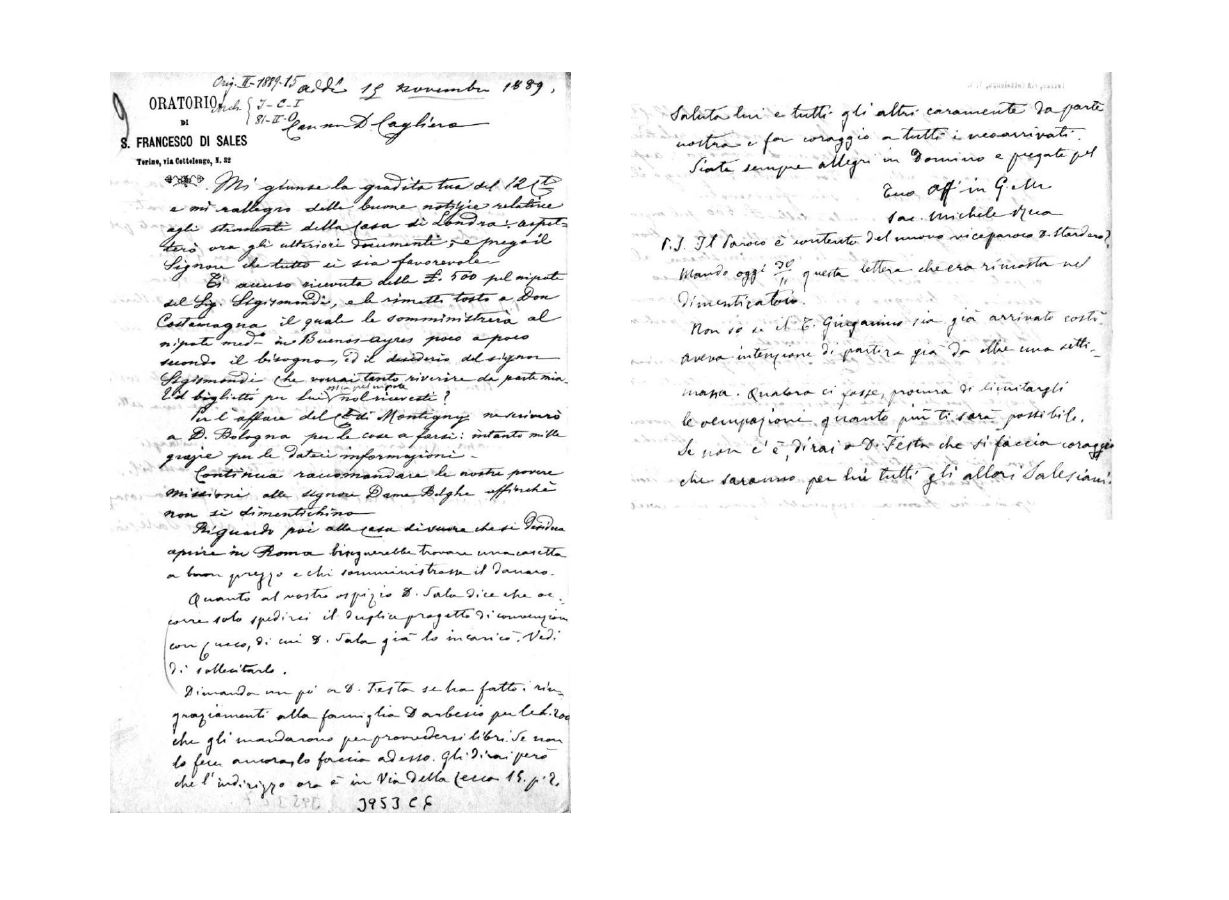 Orig. II-1889.15 addì 15 Novembre 1889.
9
ORATORIO Arch. { J-C-I
DI
81-II-0
S. FRANCESCO DI SALES
Torino, via Cottolengo, N. 32
Cariss. D. Cagliero
Mi giunse la gradita tua del 12 
e mi rallegro delle buone notizie relative
agli strumenti della Casa di Londra: aspet-
terò ora gli ulteriori documenti, e prega il
Signore che tutto ci sia favorevole
Ti accuso ricevuta delle £. 500 pel nipote
del Sig. Sigismondi, e le rimetto tosto a Don
Costamagna il quale le somministrerà al
nipote med.º in Buenos-Ayres poco a poco
secondo il bisogno, ed il desiderio del signor
Sigismondi che vorrai tanto riverire da parte mia.
Ed il biglietto per lui nol ricevesti?
Per l'affare del di Montigny ne scriverò
a D. Bologna per le cose a farsi: intanto mille
grazie per le datei informazioni -
Continua raccomandare le nostre povere
missioni alle signore Dame Belghe affinchè
non si dimentichino
Riguardo poi alla casa di suore che si desidera
aprire in Roma bisognerebbe trovare una casetta
a buon prezzo e chi somministrasse il danaro.
Quanto al nostro ospizio D. Sala dice che oc-
corre solo spedirci il duplice progetto di convenzione
con Cucco, di cui D. Sala già lo incaricò. Vedi
di sollecitarlo.
Dimanda un pò a D. Festa se ha fatto i rin-
graziamenti alla famiglia Darbesio per le L. 200
che gli mandarono per provvedersi libri. Se non
lo fece ancora, lo faccia adesso. Gli dirai però
che l'indirizzo ora è in Via della Zecca 15. p. 2.
3953 C8
Saluta lui e tutti gli altri caramente da parte
nostra e fa coraggio a tutti i neoarrivati.
Siate sempre allegri in Domino e pregate pel
Tuo Aff in G. e M.
Sac. Michele Rua
P.S. Il Paroco è contento del nuovo viceparoco D. Stardero?
Mando oggi 30/11 questa lettera che era rimasta nel
dimenticatoio.
Non so se il C. Giuganino sia già arrivato costì
aveva intenzione di partire già da oltre una setti-
mana. Qualora ci fosse, procura di limitargli
le occupazioni quanto più ti sarà possibile.
Se non c'è, dirai a D. Festa che si faccia coraggio
che saranno per lui tutti gli allori Salesiani.